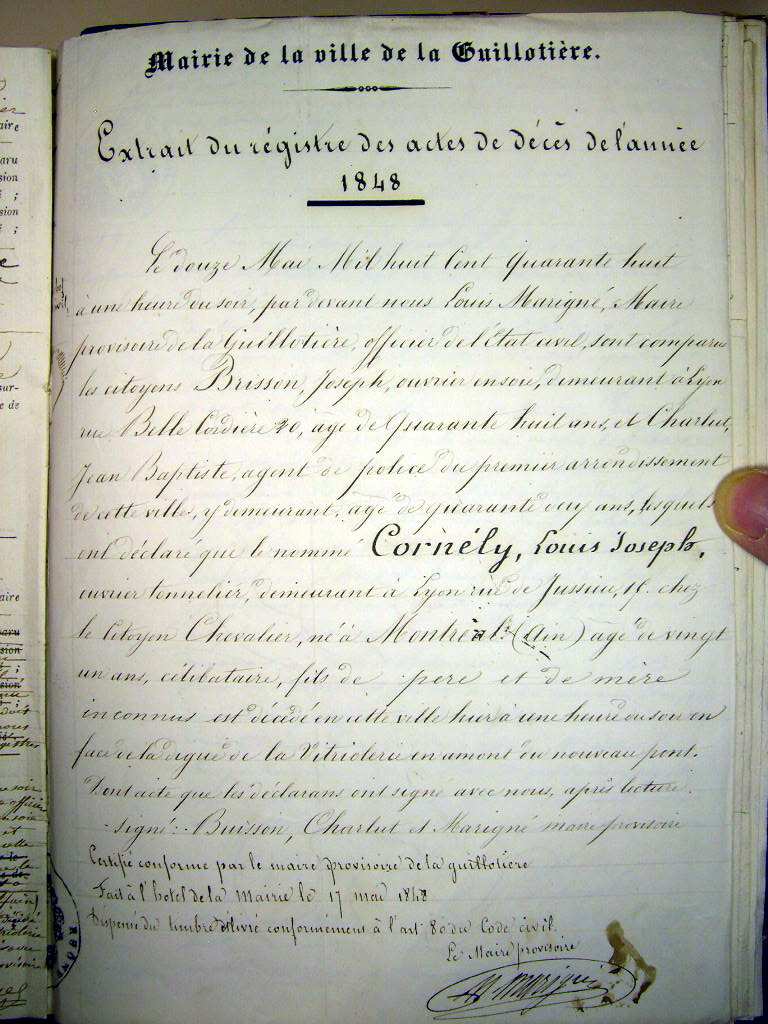 Mairie de la ville de la Guillotière.
Extrait du régistre des actes de décès de l'année
1848
Le douze Mai Mil huit Cent quarante huit
à une heure du soir, par devant nous Louis Marigné, Maire
provisoire de la Guillotière, officier de l'état civil, sont comparu
les citoyens Brisson, Joseph, ouvrier en soie, demeurant à Lyon
rue Belle Cordière 20, âgé de quarante huit ans, et Charlut,
Jean Baptiste, agent de police du premier arrondissement
de cette villes, y demeurant, âgé de quarante ans, lesquels
ont déclaré que le nommé Cornély, Louis Joseph,
ouvrier tonnelier, demeurant à Lyon rue de Jussieu, chez
le Citoyen Chevalier, né à Montréal (Ain) âgé de vingt
un ans, célibataire, fils de père et de mère
inconnus est décédé en cette ville hier à une heure du soir en
face de la digue de la Vitriolerie en amont du nouveau pont.
Dont acte que les déclarans ont signé avec nous, après lecture.
signé: Buisson, Charlut et Marigné maire provisoire
Certifié conforme par le maire provisoire de la guillotière
Fait à l'hotel de la Mairie le 17 mai 1848
Dispensé du timbre délivré conformément à l'art 80 du Code civil.
Le Maire provisoire